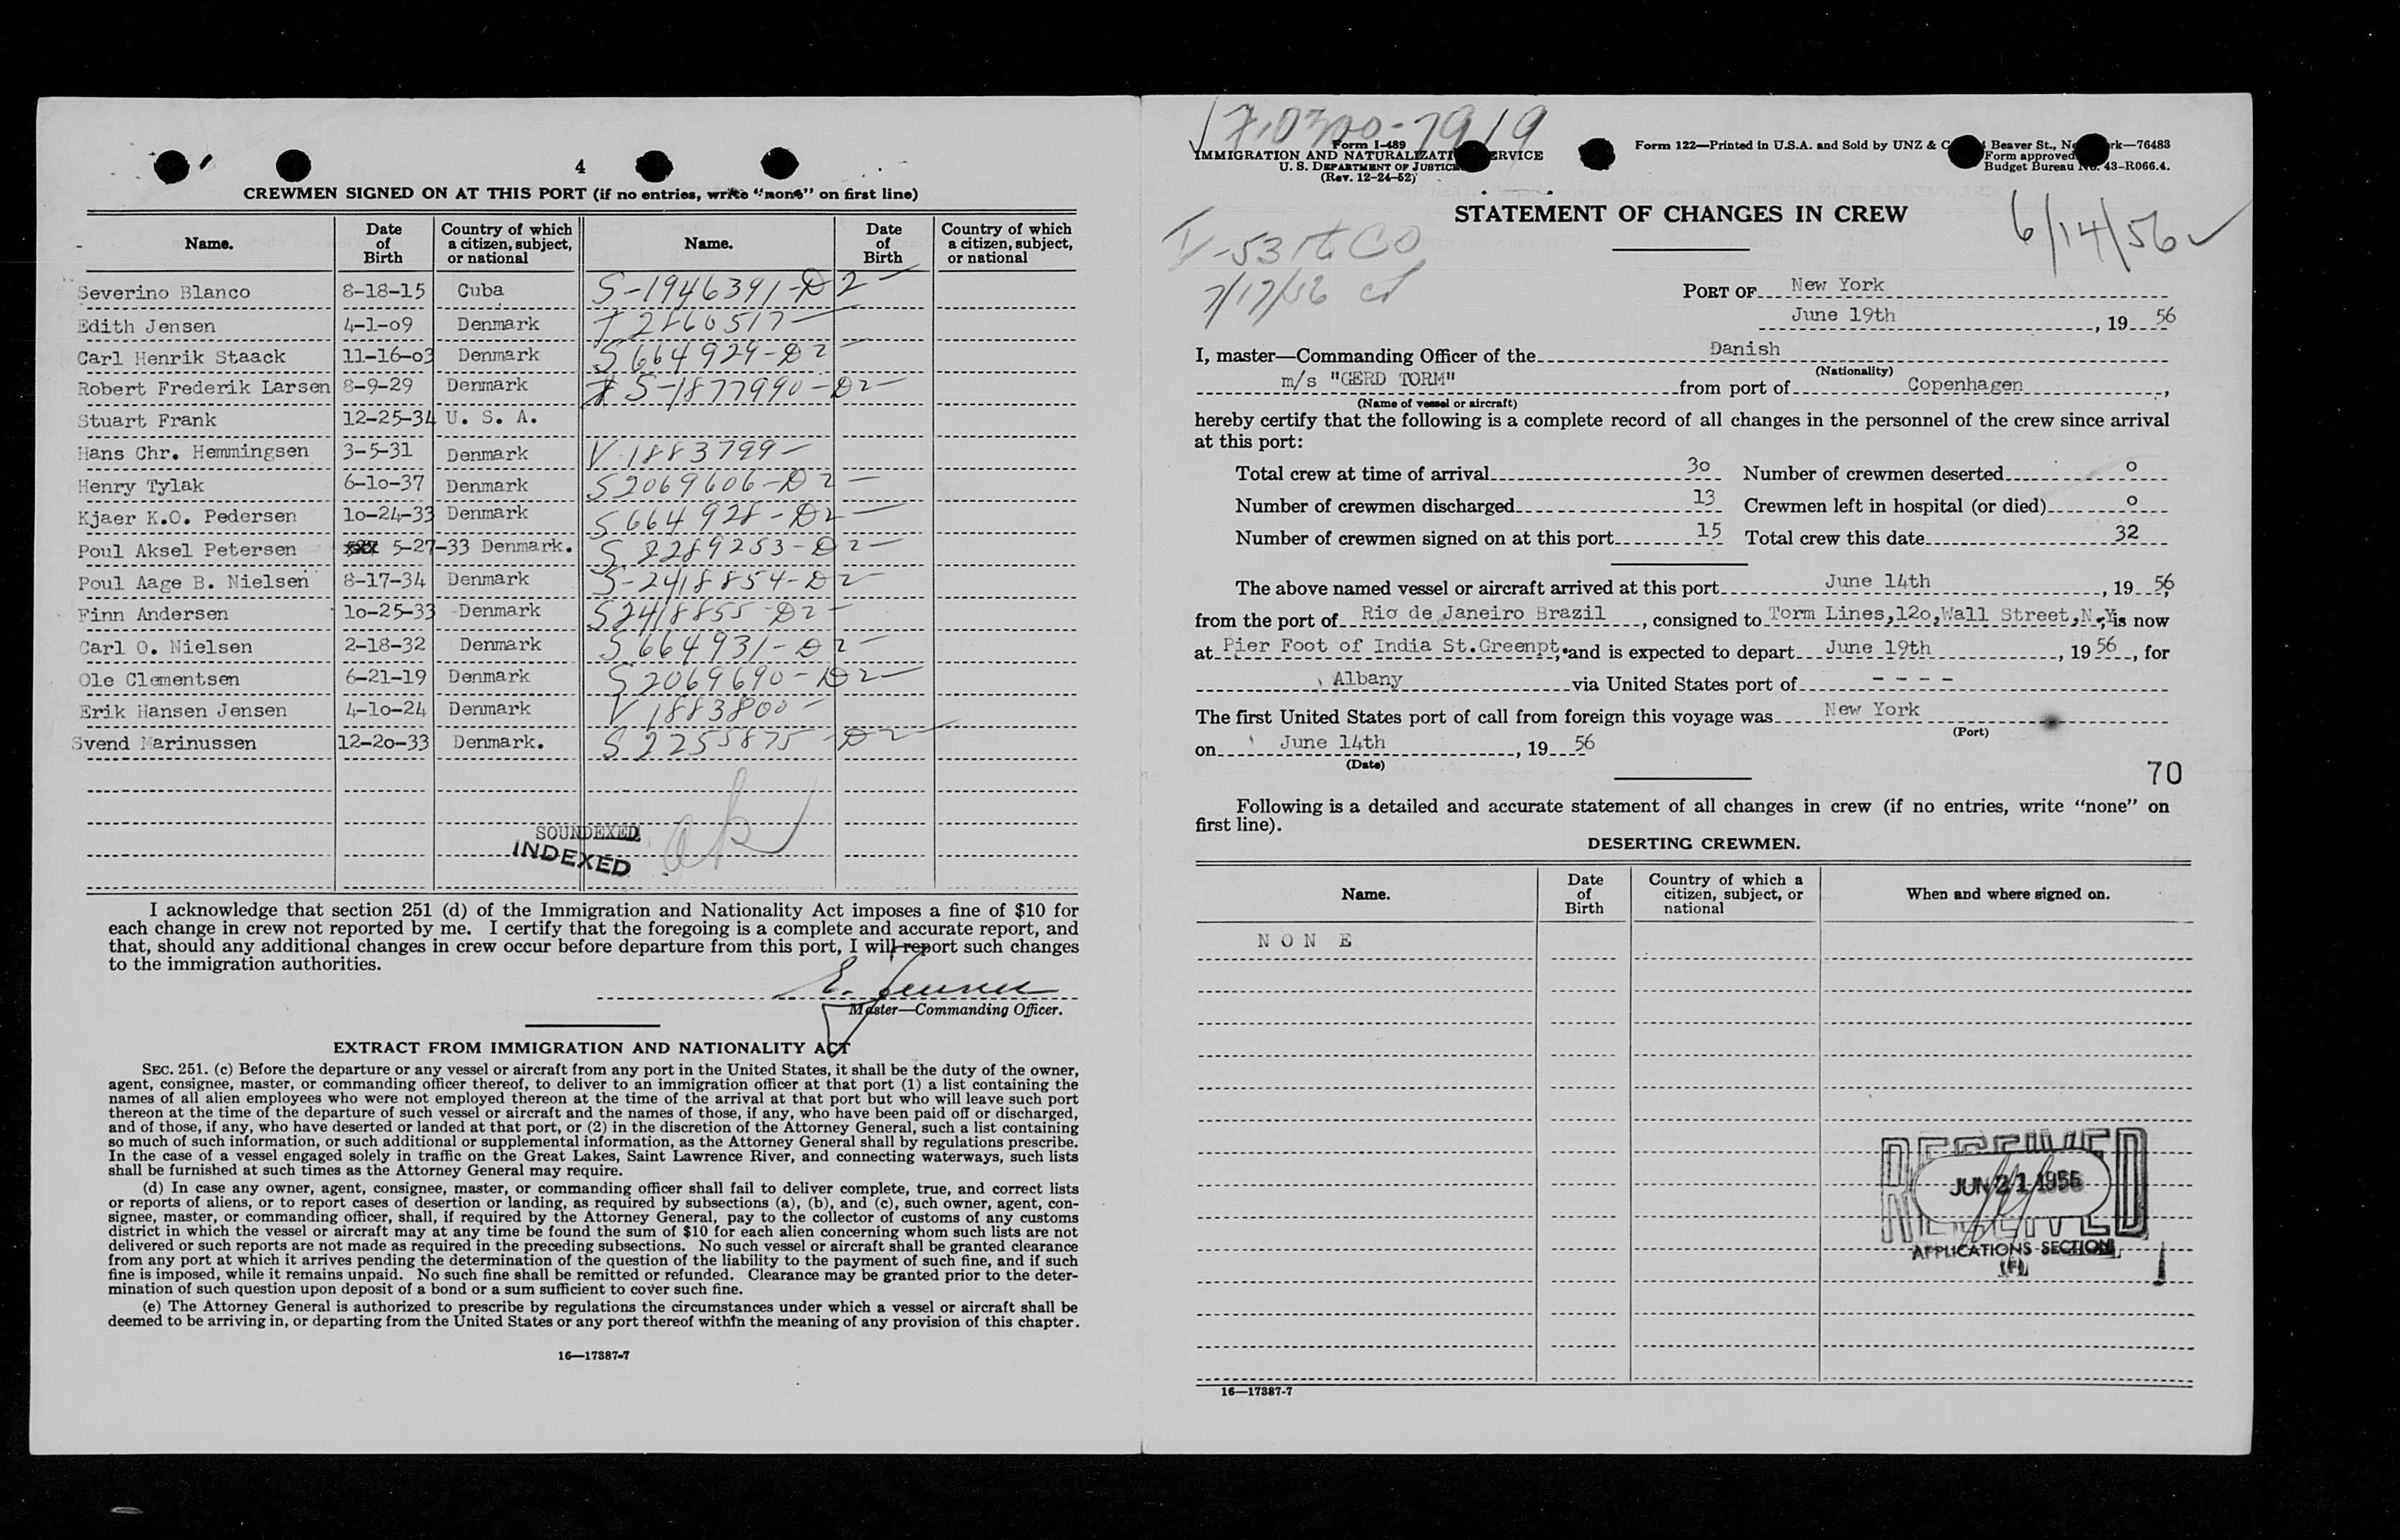 4
CREWMEN SIGNED ON AT THIS PORT (if no entries, write "none" on first line)
Name. Date of Birth Country of which a citizen, subject, or national Name. Date of Birth Country of which a citizen, subject, or national
Severino Blanco 8-18-15 Cuba S-1946391-D2
Edith Jensen 4-1-o9 Denmark T 2860517
Carl Henrik Staack 11-16-o3 Denmark S 664929-D2
Robert Frederik Larsen 8-9-29 Denmark S-1877990-D2
Stuart Frank 12-25-34 U. S. A.
Hans Chr. Hemmingsen 3-5-31 Denmark V 1883799
Henry Tylak 6-1o-37 Denmark S 2069606-D2
Kjaer K.O. Pedersen 1o-24-33 Denmark S 664928-D2
Poul Aksel Petersen 5-27-33 Denmark. S 2289253-D2
Poul Aage B. Nielsen 8-17-34 Denmark S-2418854-D2
Finn Andersen 1o-25-33 Denmark S 2418855-D2
Carl O. Nielsen 2-18-32 Denmark S 664931-D2
Ole Clementsen 6-21-19 Denmark S 2069690-D2
Erik Hansen Jensen 4-1o-24 Denmark V 1883800
Svend Marinussen 12-2o-33 Denmark. S 2255875-D2
SOUNDEXED
INDEXED
ok
I acknowledge that section 251 (d) of the Immigration and Nationality Act imposes a fine of $10 for
each change in crew not reported by me. I certify that the foregoing is a complete and accurate report, and
that, should any additional changes in crew occur before departure from this port, I will report such changes
to the immigration authorities.
Master—Commanding Officer.
EXTRACT FROM IMMIGRATION AND NATIONALITY ACT
SEC. 251. (c) Before the departure or any vessel or aircraft from any port in the United States, it shall be the duty of the owner,
agent, consignee, master, or commanding officer thereof, to deliver to an immigration officer at that port (1) a list containing the
names of all alien employees who were not employed thereon at the time of the arrival at that port but who will leave such port
thereon at the time of the departure of such vessel or aircraft and the names of those, if any, who have been paid off or discharged,
and of those, if any, who have deserted or landed at that port, or (2) in the discretion of the Attorney General, such a list containing
so much of such information, or such additional or supplemental information, as the Attorney General shall by regulations prescribe.
In the case of a vessel engaged solely in traffic on the Great Lakes, Saint Lawrence River, and connecting waterways, such lists
shall be furnished at such times as the Attorney General may require.
(d) In case any owner, agent, consignee, master, or commanding officer shall fail to deliver complete, true, and correct lists
or reports of aliens, or to report cases of desertion or landing, as required by subsections (a), (b), and (c), such owner, agent, con-
signee, master, or commanding officer, shall, if required by the Attorney General, pay to the collector of customs of any customs
district in which the vessel or aircraft may at any time be found the sum of $10 for each alien concerning whom such lists are not
delivered or such reports are not made as required in the preceding subsections. No such vessel or aircraft shall be granted clearance
from any port at which it arrives pending the determination of the question of the liability to the payment of such fine, and if such
fine is imposed, while it remains unpaid. No such fine shall be remitted or refunded. Clearance may be granted prior to the deter-
mination of such question upon deposit of a bond or a sum sufficient to cover such fine.
(e) The Attorney General is authorized to prescribe by regulations the circumstances under which a vessel or aircraft shall be
deemed to be arriving in, or departing from the United States or any port thereof within the meaning of any provision of this chapter.
16—17387-7
Form I-489
IMMIGRATION AND NATURALIZATI ERVICE
U. S. DEPARTMENT OF JUSTICE
(Rev. 12-24-52)
Form 122—Printed in U.S.A. and Sold by UNZ & C Beaver St., N rk—76483
Form approved
Budget Bureau No. 43-R066.4.
STATEMENT OF CHANGES IN CREW
6/14/56
7/17/56
PORT OF New York
June 19th, 19 56
I, master—Commanding Officer of the Danish
(Nationality)
m/s "GERD TORM" from port of Copenhagen,
(Name of vessel or aircraft)
hereby certify that the following is a complete record of all changes in the personnel of the crew since arrival
at this port:
Total crew at time of arrival 3o Number of crewmen deserted o
Number of crewmen discharged 13 Crewmen left in hospital (or died) o
Number of crewmen signed on at this port 15 Total crew this date 32
The above named vessel or aircraft arrived at this port June 14th, 19 56,
from the port of Rio de Janeiro Brazil, consigned to Torm Lines,12o,Wall Street,N.Y. is now
at Pier Foot of India St.Greenpt. and is expected to depart June 19th, 19 56, for
Albany via United States port of - - - -
The first United States port of call from foreign this voyage was New York
(Port)
on June 14th, 19 56
(Date)
70
Following is a detailed and accurate statement of all changes in crew (if no entries, write "none" on
first line).
DESERTING CREWMEN.
Name. Date of Birth Country of which a citizen, subject, or national When and where signed on.
N O N E
RECEIVED
JUN 21 1956
APPLICATIONS SECTION
16—17387-7